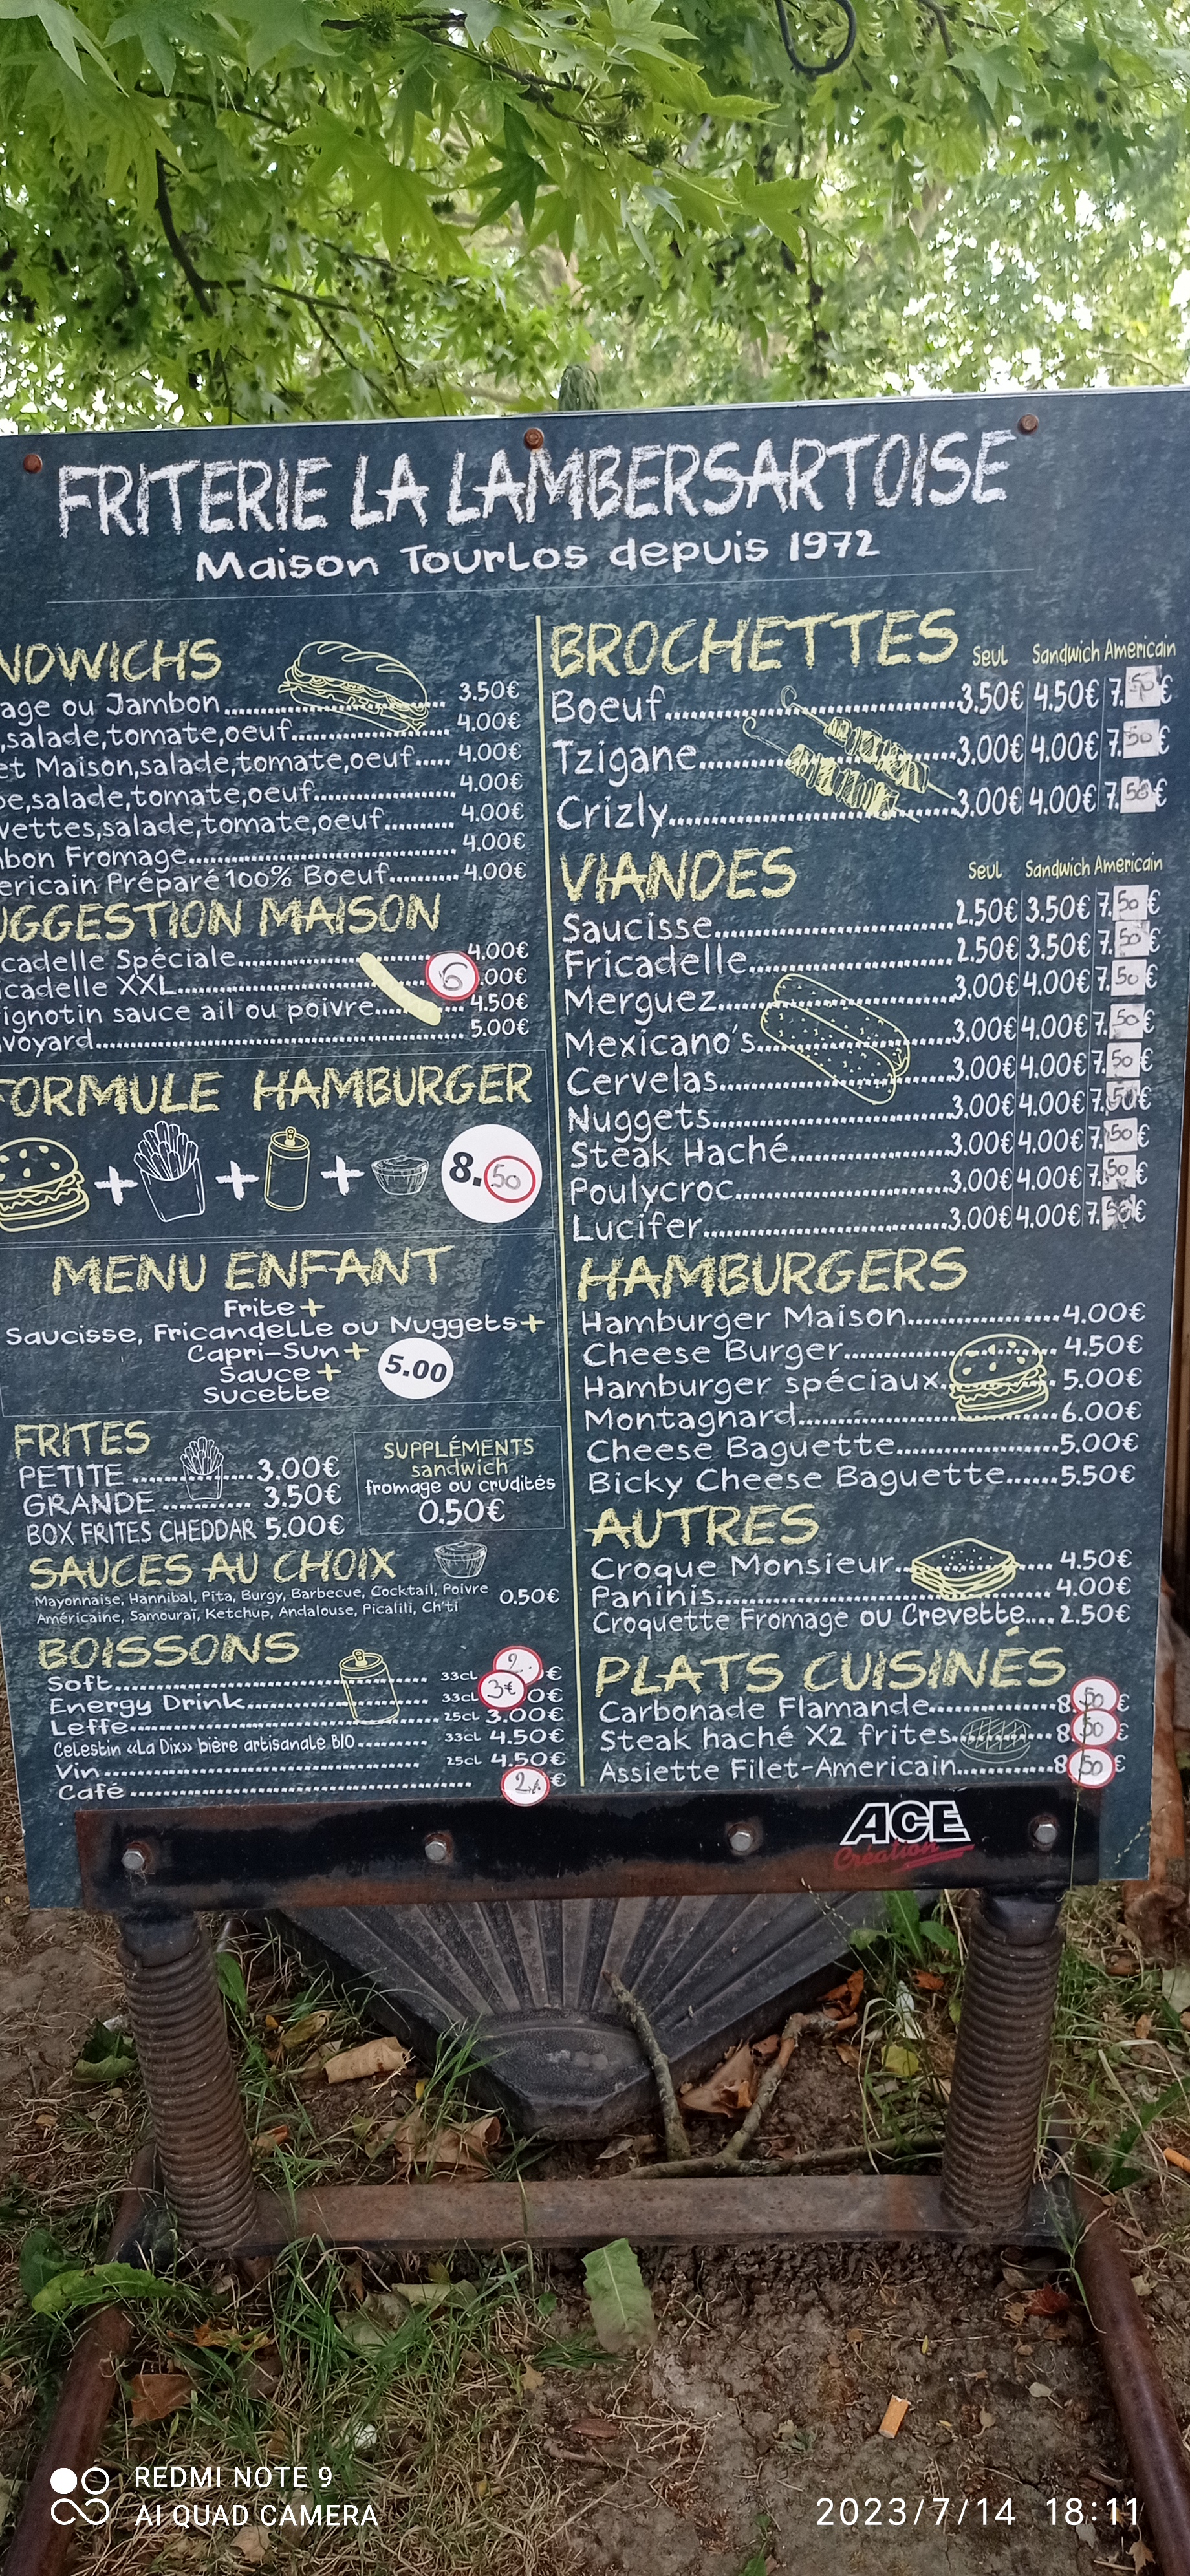 FRITERIE LA LAMBERSARTOISE
Maison Tourlos depuis 1972
NDWICHS
age ou Jambon 3.50€
,salade,tomate,oeuf 4.00€
et Maison,salade,tomate,oeuf 4.00€
be,salade,tomate,oeuf 4.00€
vettes,salade,tomate,oeuf 4.00€
bon Fromage 4.00€
ericain Préparé 100% Boeuf 4.00€
UGGESTION MAISON
cadelle Spéciale 4.00€
icadelle XXL 6 .00€
ignotin sauce ail ou poivre 4.50€
voyard 5.00€
FORMULE HAMBURGER
+ + + 8.50
MENU ENFANT
Frite +
Saucisse, Fricandelle ou Nuggets +
Capri-Sun +
Sauce +
Sucette
5.00
FRITES
PETITE 3.00€
GRANDE 3.50€
BOX FRITES CHEDDAR 5.00€
SUPPLÉMENTS
sandwich
fromage ou crudités
0.50€
SAUCES AU CHOIX
Mayonnaise, Hannibal, Pita, Burgy, Barbecue, Cocktail, Poivre
Américaine, Samouraï, Ketchup, Andalouse, Picalili, Ch'ti
0.50€
BOISSONS
Soft 33cl 2. €
Energy Drink 33cl 3€ 0€
Leffe 25cl 3.00€
Celestin «La Dix» bière artisanale BIO 33cl 4.50€
Vin 25cl 4.50€
Café 2 €
BROCHETTES Seul Sandwich Americain
Boeuf 3.50€ 4.50€ 7.50€
Tzigane 3.00€ 4.00€ 7.50€
Crizly 3.00€ 4.00€ 7.50€
VIANDES Seul Sandwich Americain
Saucisse 2.50€ 3.50€ 7.50€
Fricadelle 2.50€ 3.50€ 7.50€
Merguez 3.00€ 4.00€ 7.50€
Mexicano's 3.00€ 4.00€ 7.50€
Cervelas 3.00€ 4.00€ 7.50€
Nuggets 3.00€ 4.00€ 7.50€
Steak Haché 3.00€ 4.00€ 7.50€
Poulycroc 3.00€ 4.00€ 7.50€
Lucifer 3.00€ 4.00€ 7.50€
HAMBURGERS
Hamburger Maison 4.00€
Cheese Burger 4.50€
Hamburger spéciaux 5.00€
Montagnard 6.00€
Cheese Baguette 5.00€
Bicky Cheese Baguette 5.50€
AUTRES
Croque Monsieur 4.50€
Paninis 4.00€
Croquette Fromage ou Crevette 2.50€
PLATS CUISINÉS
Carbonade Flamande 8.50€
Steak haché X2 frites 8.50€
Assiette Filet-Americain 8.50€
ACE
Création
REDMI NOTE 9
AI QUAD CAMERA
2023/7/14 18:11